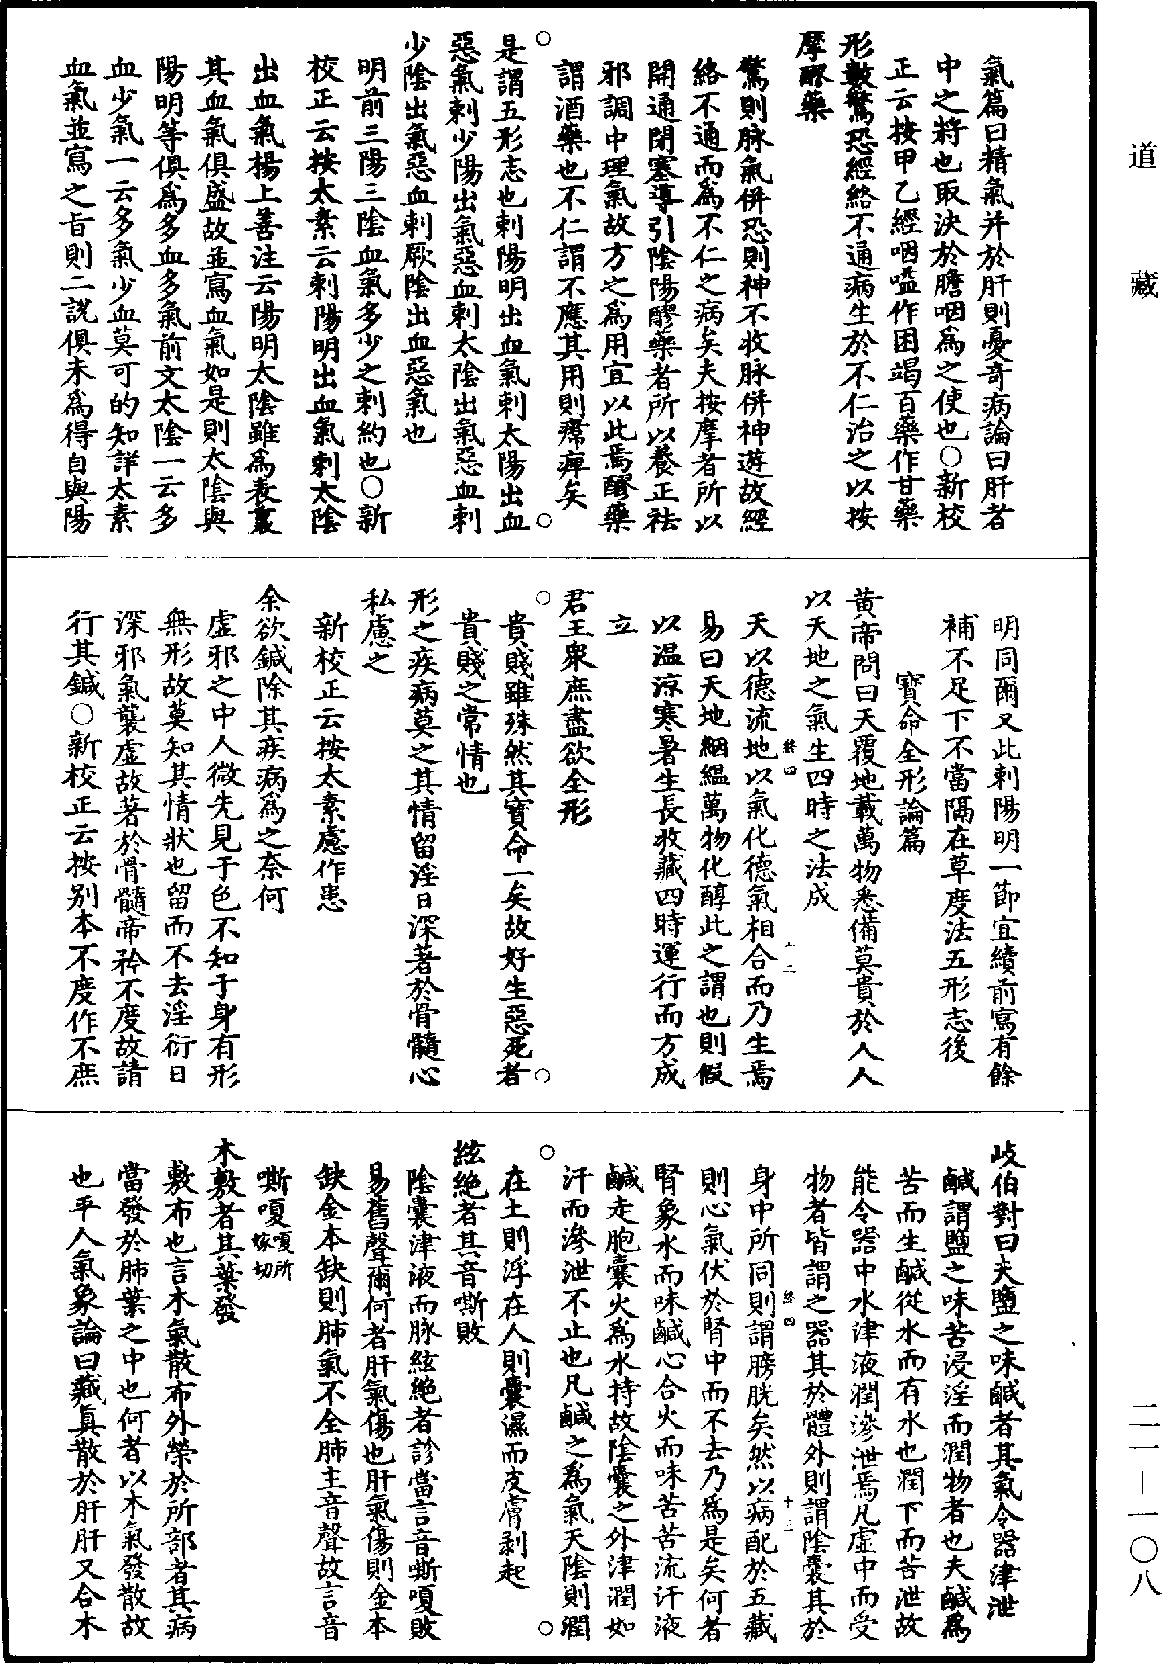 道藏
氣篇曰精氣并於肝則憂奇病論曰肝者
中之將也取決於膽咽爲之使也○新校
正云按甲乙經咽嗌作困竭百藥作甘藥
形數驚恐經絡不通病生於不仁治之以按
摩醪藥
驚則脉氣併恐則神不收脉併神遊故經
絡不通而爲不仁之病矣夫按摩者所以
開通閉塞導引陰陽醪藥者所以養正祛
邪調中理氣故方之爲用宜以此焉醪藥
謂酒藥也不仁謂不應其用則㿏痺矣
○○
是謂五形志也刺陽明出血氣刺太陽出血
惡氣刺少陽出氣惡血刺太陰出氣惡血刺
少陰出氣惡血刺厥陰出血惡氣也
明前三陽三陰血氣多少之刺約也○新
校正云按太素云刺陽明出血氣刺太陰
出血氣楊上善注云陽明太陰雖爲表裏
其血氣俱盛故並寫血氣如是則太陰與
陽明等俱爲多血多氣前文太陰一云多
血少氣一云多氣少血莫可的知詳太素
血氣並寫之旨則二說俱未爲得自與陽
明同爾又此刺陽明一節宜續前寫有餘
補不足下不當隔在草度法五形志後
寶命全形論篇
黄帝問曰天覆地載萬物悉備莫貴於人人
以天地之氣生四時之法成
天以德流地以氣化德氣相合而乃生焉
易曰天地絪緼萬物化醇此之謂也則假
以温涼寒暑生長收藏四時運行而方成
立
君王衆庶盡欲全形
○○
貴賤雖殊然其寶命一矣故好生惡死者
貴賤之常情也
形之疾病莫之其情留淫日深著於骨髓心
私慮之
新校正云按太素慮作患
余欲鍼除其疾病爲之奈何
虛邪之中人微先見于色不知于身有形
無形故莫知其情狀也留而不去淫衍日
深邪氣襲虛故著於骨髓帝矜不度故請
行其鍼○新校正云按別本不度作不庶
岐伯對曰夫鹽之味鹹者其氣令器津泄
鹹謂鹽之味苦浸淫而潤物者也夫鹹爲
苦而生鹹從水而有水也潤下而苦泄故
能令器中水津液潤滲泄焉凡虛中而受
物者皆謂之器其於體外則謂陰囊其於
身中所同則謂膀胱矣然以病配於五藏
則心氣伏於腎中而不去乃爲是矣何者
腎象水而味鹹心合火而味苦苦流汗液
鹹走胞囊火爲水持故陰囊之外津潤如
汗而滲泄不止也凡鹹之爲氣天陰則潤
○○
在土則浮在人則囊濕而皮膚剥起
絃絶者其音嘶敗
陰囊津液而脉絃絶者診當言音嘶嗄敗
易舊聲爾何者肝氣傷也肝氣傷則金本
缺金本缺則肺氣不全肺主音聲故言音
嘶嗄嗄所嫁切
木敷者其葉發
敷布也言木氣散布外榮於所部者其病
當發於肺葉之中也何者以木氣發散故
也平人氣象論曰藏真散於肝肝又合木
二一—一〇八